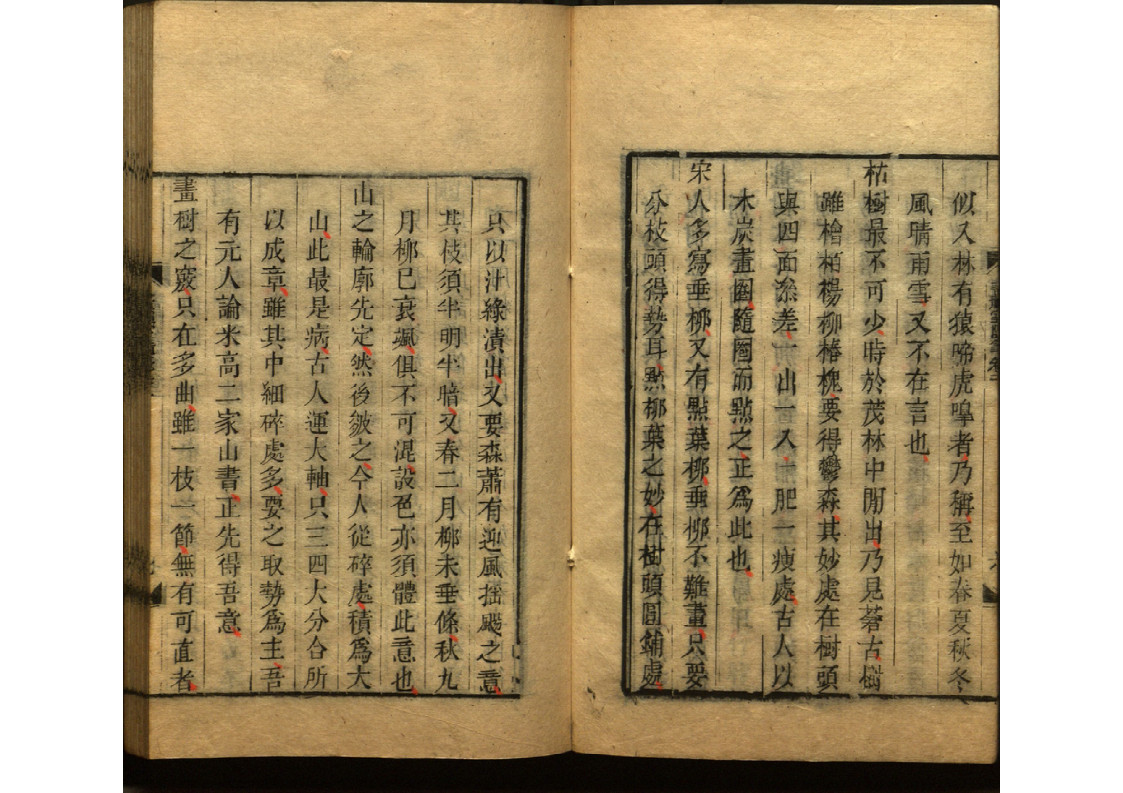 似又林有猿啼虎嘷者乃稱至如春夏秋冬
風晴雨雪又不在言也
枯樹最不可少時於茂林中閒出乃見蒼古樹
雖檜柏楊柳椿槐要得鬱森其妙處在樹頭
與四面叅差一出一入一肥一瘦處古人以
木炭畫圈隨圈而點之正爲此也
宋人多寫垂柳又有點葉柳垂柳不難畫只要
分枝頭得勢耳點柳葉之妙在樹頭圓鋪處
只以汁綠漬出又要森蕭有迎風搖颺之意
其枝須半明半暗又春二月柳未垂條秋九
月柳巳衰颯俱不可混設色亦須體此意也
山之輪廓先定然後皴之今人從碎處積爲大
山此最是病古人運大軸只三四大分合所
以成章雖其中細碎處多要之取勢爲主吾
有元人論米高二家山書正先得吾意
畫樹之竅只在多曲雖一枝一節無有可直者